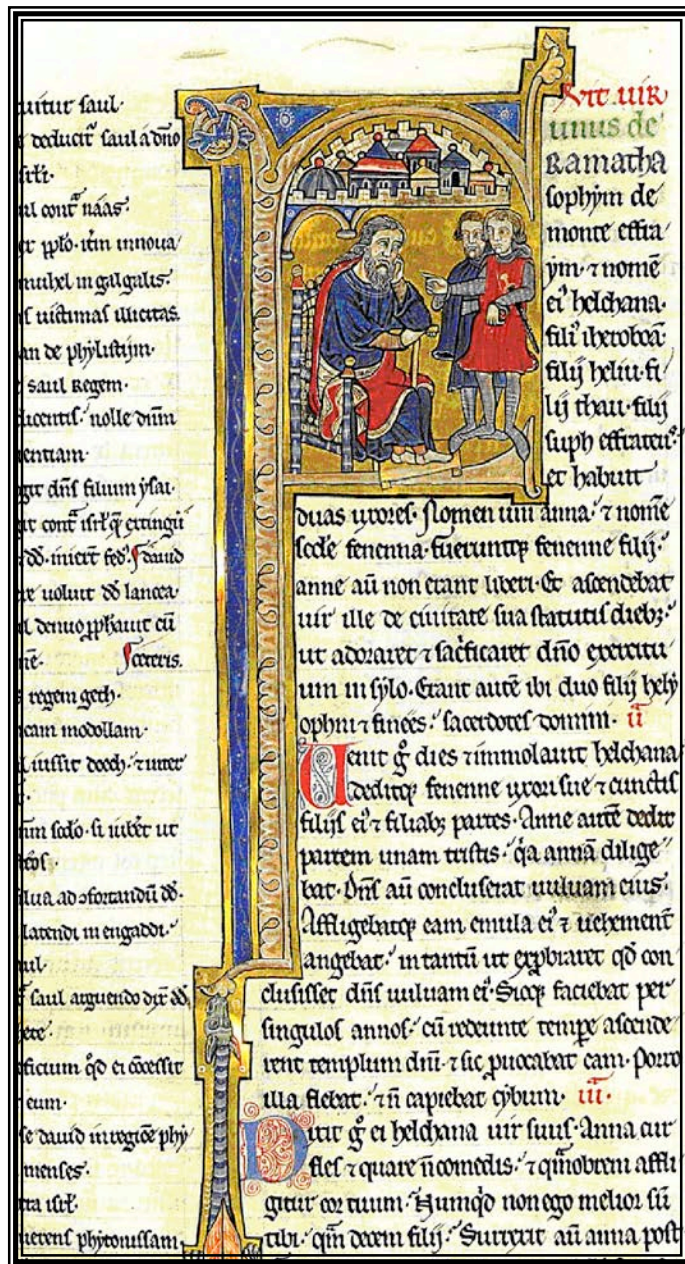 uitur saul·
e deducit᷑ saul a dño
isrł·
ul cont᷑ náas·
innoua
muhel in galgalis·
ns uictimas illicitas
an de phylistijm·
e saul regem·
dicentis· nolle dñm
uentiam·
git dñs filium ysai·
dauid
re uoluit dđ lancea
ceteris·
s regem geth·
odollam·
l iussit doech· ⁊ inter
latendi in engaddi·
aul·
saul arguendo dix᷑ dđ·
eum·
se dauid in regiõe phy
menses·
tra isrł·
uerens phytonissam·
Fuit uir
unus de
Ramatha
sophym de
monte effra
ym· ⁊ nomẽ
ei᷒ helchana·
fili᷒ iheroboã·
filij heliu· fi
lij thau· filij
suph effrateus·
et habuit
duas uxores· Nomen uni anna· ⁊ nomẽ
scđe fenenna· fueruntq᷒ fenenne filij·
anne aũ non erant liberi· Et ascendebat
uir ille de ciuitate sua statutis dieb᷒·
ut adoraret ⁊ sac̃ficaret dño exercitu
um in sylo· Erant autẽ ibi duo filij hely
ophni ⁊ finees· sacerdotes domini· ii
Uenit g̊ dies ⁊ immolauit helchana·
deditq᷒ fenenne uxori sue ⁊ cunctis
filijs ei᷒ ⁊ filiab᷒ partes· Anne autẽ dedit
partem unam tristis· q̃a annã dilige
bat· Dñs aũ concluserat uuluam eius·
Affligebatq᷒ eam emula ei᷒ ⁊ uehement᷑
angebat· in tantũ ut exp̱braret qđ con
clusisset dñs uuluam ei᷒· Sicq᷒ faciebat per
singulos annos· cũ redeunte temp̱e ascende
rent templum dñi· ⁊ sic ꝓuocabat eam· Porro
illa flebat· ⁊ ñ capiebat cybum· iii·
Dixit g̊ ei helchana uir suus· Anna cur
fles ⁊ quare ñ comedis· ⁊ q̃mobrem affli
gitur cor tuum· Numqđ non ego melior sũ
tibi· q̃m decem filij· Surrexit aũ anna post